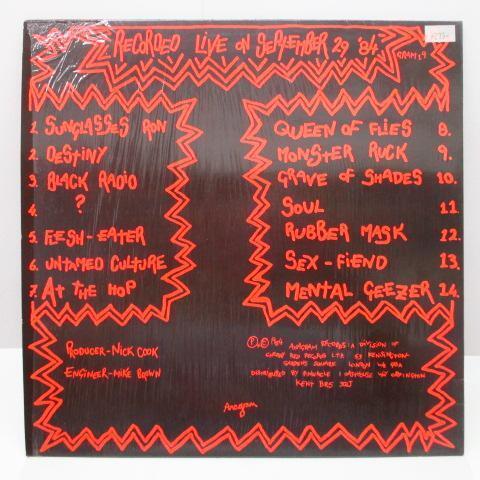 RECORDED LIVE ON SEPTEMBER 29 '84
GRAM 19
1. SUNGLASSES RON
2. DESTINY
3. BLACK RADIO
4. ?
5. FLESH-EATER
6. UNTAMED CULTURE
7. AT THE HOP
QUEEN OF FLIES 8.
MONSTER RUCK 9.
GRAVE OF SHADES 10.
SOUL 11.
RUBBER MASK 12.
SEX-FIEND 13.
MENTAL GEEZER 14.
PRODUCER-NICK COOK
ENGINEER-MIKE BROWN
Ⓟ © 1984 ANAGRAM RECORDS: A DIVISION OF
CHERRY RED RECORDS LTD 53 KENSINGTON
GARDENS SQUARE LONDON W2
DISTRIBUTED BY PINNACLE ORPINGTON
KENT BR5
Anagram